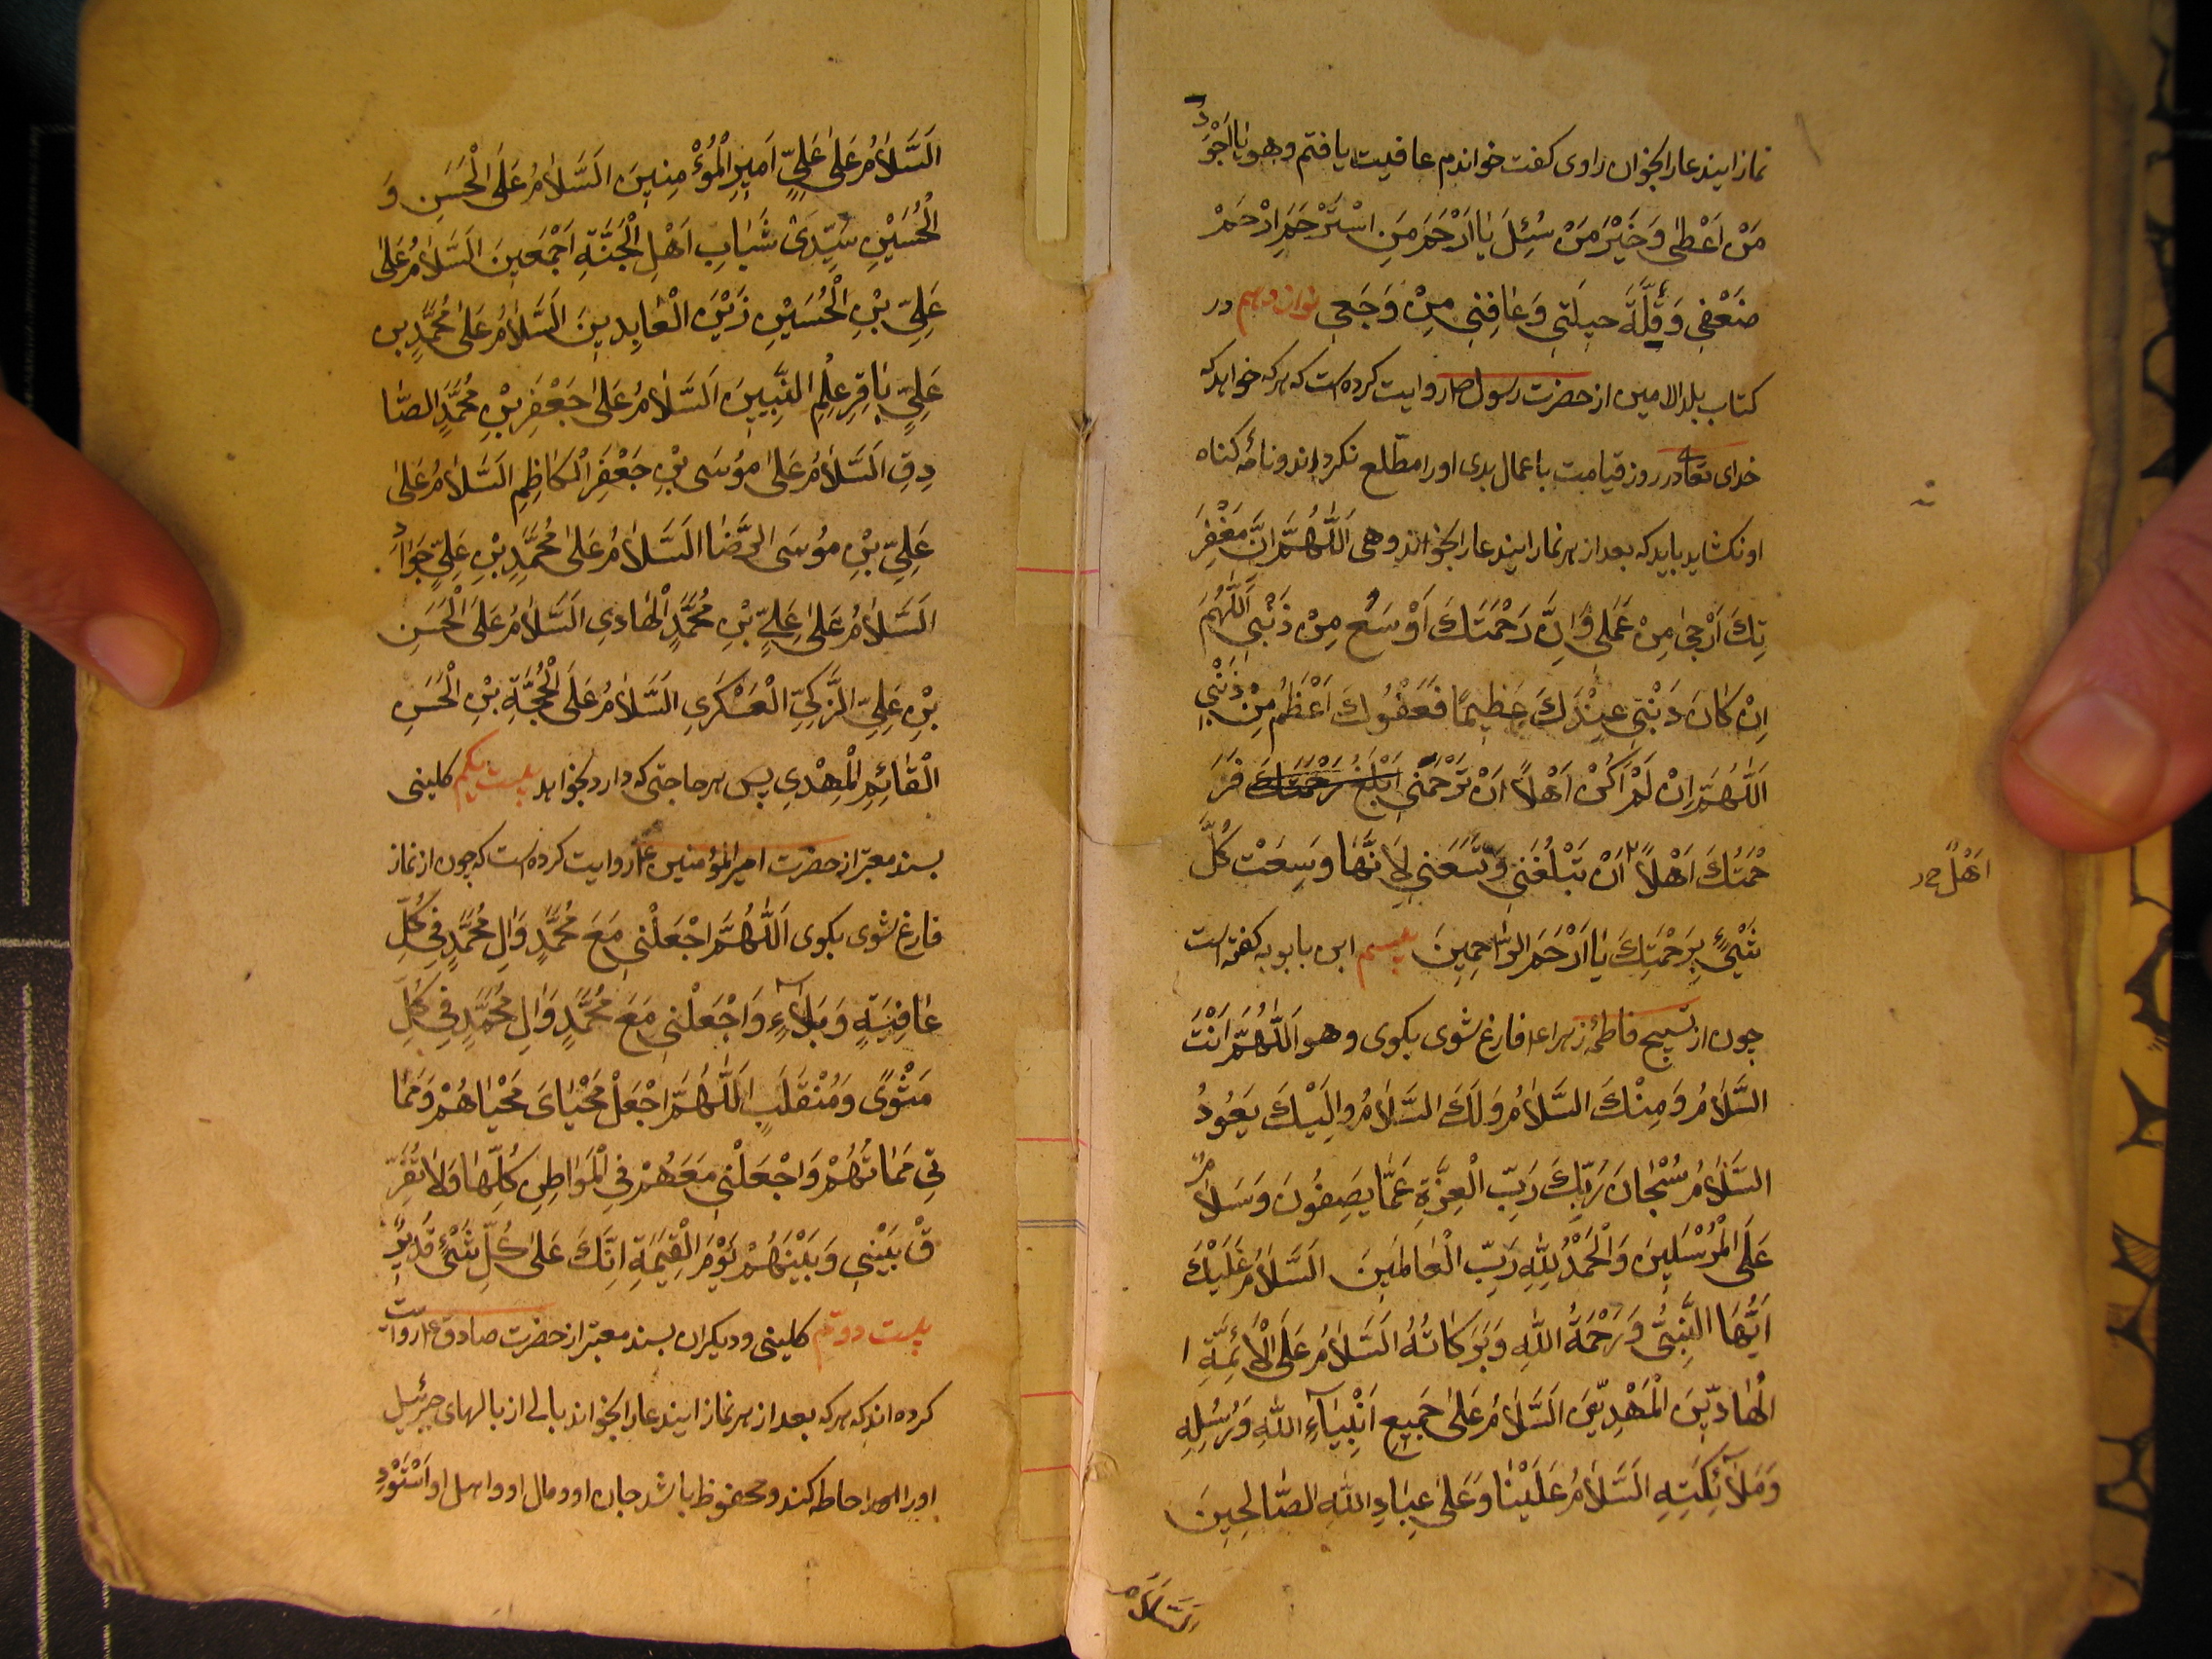 نماز ایندعا را بخوان راوی کفت خواندم عافیت یافتم وهو یٰا اَجْوَدَ
مَنْ اَعْطٰی وَخَیْرَ مَنْ سُئِلَ یٰا اَرْحَمَ مَنِ اسْتَرْحَمَ اِرْحَمْ
ضَعْفی وَقِلَّةَ حیلَتی وَعٰافِنی مِنْ وَجَعی نوازدهم در
کتاب بلد الامین از حضرت رسول ص روایت کرده است که هر که خواهد که
خدای تعالی در روز قیامت باعمال بدی او را مطّلع نکرداند ونامهٔ کناه
او نکشاید باید که بعد از هر نماز ایندعا را بخواند وهی اَللّٰهُمَّ اِنَّ مَغْفِرَ
تِكَ اَرْجیٰ مِنْ عَمَلی وَاِنَّ رَحْمَتَكَ اَوْسَعُ مِنْ ذَنْبی اَللّٰهُمَّ
اِنْ کٰانَ ذَنْبی عِنْدَكَ عَظیمًا فَعَفْوُكَ اَعْظَمُ مِنْ ذَنْبی
اَللّٰهُمَّ اِنْ لَمْ اَکُنْ اَهْلاً اَنْ تَرْحَمَنی اَبْلُغَ رَحْمَتَكَ فَرَ
حْمَتُكَ اَهْلاً اَنْ تَبْلُغَنی وَتَسَعَنی لِاَنَّهٰا وَسِعَتْ کُلَّ
اَهْلٌ صح
شَیْءٍ بِرَحْمَتِكَ یٰا اَرْحَمَ الرّٰاحِمینَ بیستم ابن بابویه کفته است
چون از تسبیح فاطمهٔ زهرا ع فارغ شوی بکوی وهو اَللّٰهُمَّ اَنْتَ
السَّلاٰمُ وَمِنْكَ السَّلاٰمُ وَلَكَ السَّلاٰمُ وَاِلَیْكَ یَعُودُ
السَّلاٰمُ سُبْحٰانَ رَبِّكَ رَبِّ الْعِزَّةِ عَمّٰا یَصِفُونَ وَسَلاٰمٌ
عَلَی الْمُرْسَلینَ وَالْحَمْدُ لِلّٰهِ رَبِّ الْعٰالَمینَ اَلسَّلاٰمُ عَلَیْكَ
اَیُّهَا النَّبِیُّ وَرَحْمَةُ اللّٰهِ وَبَرَکٰاتُهُ اَلسَّلاٰمُ عَلَی الْاَئِمَّةِ ا
لْهٰادّینَ الْمَهْدِیّینَ اَلسَّلاٰمُ عَلیٰ جَمیعِ اَنْبِیٰآءِ اللّٰهِ وَرُسُلِهِ
وَمَلاٰئِکَتِهِ اَلسَّلاٰمُ عَلَیْنٰا وَعَلیٰ عِبٰادِ اللّٰهِ الصّٰالِحینَ
اَلسَّلاٰم
اَلسَّلاٰمُ عَلیٰ عَلِیٍّ اَمیرِ الْمُؤْمِنینَ اَلسَّلاٰمُ عَلَی الْحَسَنِ وَ
الْحُسَیْنِ سَیِّدَیْ شَبٰابِ اَهْلِ الْجَنَّةِ اَجْمَعینَ اَلسَّلاٰمُ عَلیٰ
عَلِیِّ بْنِ الْحُسَیْنِ زَیْنِ الْعٰابِدینَ اَلسَّلاٰمُ عَلیٰ مُحَمَّدِ بن
عَلِیٍّ بٰاقِرِ عِلْمِ النَّبِیّینَ اَلسَّلاٰمُ عَلیٰ جَعْفَرِ بْنِ مُحَمَّدٍ الصّٰا
دِقِ اَلسَّلاٰمُ عَلیٰ مُوسَی بْنِ جَعْفَرٍ الْکٰاظِمِ اَلسَّلاٰمُ عَلیٰ
عَلِیِّ بْنِ مُوسَی الرِّضٰا اَلسَّلاٰمُ عَلیٰ مُحَمَّدِ بْنِ عَلِیٍّ جَوٰادِ
اَلسَّلاٰمُ عَلیٰ عَلِیِّ بْنِ مُحَمَّدٍ الْهٰادی اَلسَّلاٰمُ عَلَی الْحَسَنِ
بْنِ عَلِیٍّ الزَّکِیِّ الْعَسْکَرِیِ اَلسَّلاٰمُ عَلَی الْحُجَّةِ بْنِ الْحَسَنِ
الْقٰائِمِ الْمَهْدِیِ پس هر حاجتی که دارد بخواهد بیست یکم کلینی
بسند معتبر از حضرت امیر المؤمنین ع روایت کرده است که چون از نماز
فارغ شوی بکوی اَللّٰهُمَّ اجْعَلْنی مَعَ مُحَمَّدٍ وَاٰلِ مُحَمَّدٍ فی کُلِّ
عٰافِیَةٍ وَبَلاٰءٍ وَاجْعَلْنی مَعَ مُحَمَّدٍ وَاٰلِ مُحَمَّدٍ فی کُلِّ
مَثْوًی وَمُنْقَلَبٍ اَللّٰهُمَّ اجْعَلْ مَحْیٰایَ مَحْیٰاهُمْ وَمَمٰا
تی مَمٰاتَهُمْ وَاجْعَلْنی مَعَهُمْ فِی الْمَوٰاطِنِ کُلِّهٰا وَلاٰ تُفَرِّ
قْ بَیْنی وَبَیْنَهُمْ یَوْمَ الْقِیٰمَةِ اِنَّكَ عَلیٰ کُلِّ شَیْءٍ قَدیرٌ
بیست دوّیم کلینی ودیکران بسند معتبر از حضرت صادق ع روایت
کرده اند که هر که بعد از هر نماز ایندعا را بخواند بالی از بالهای جبرئیل
او را احاطه کند ومحفوظ باشد جان او ومال او واهل او اَسْتَوْدِ